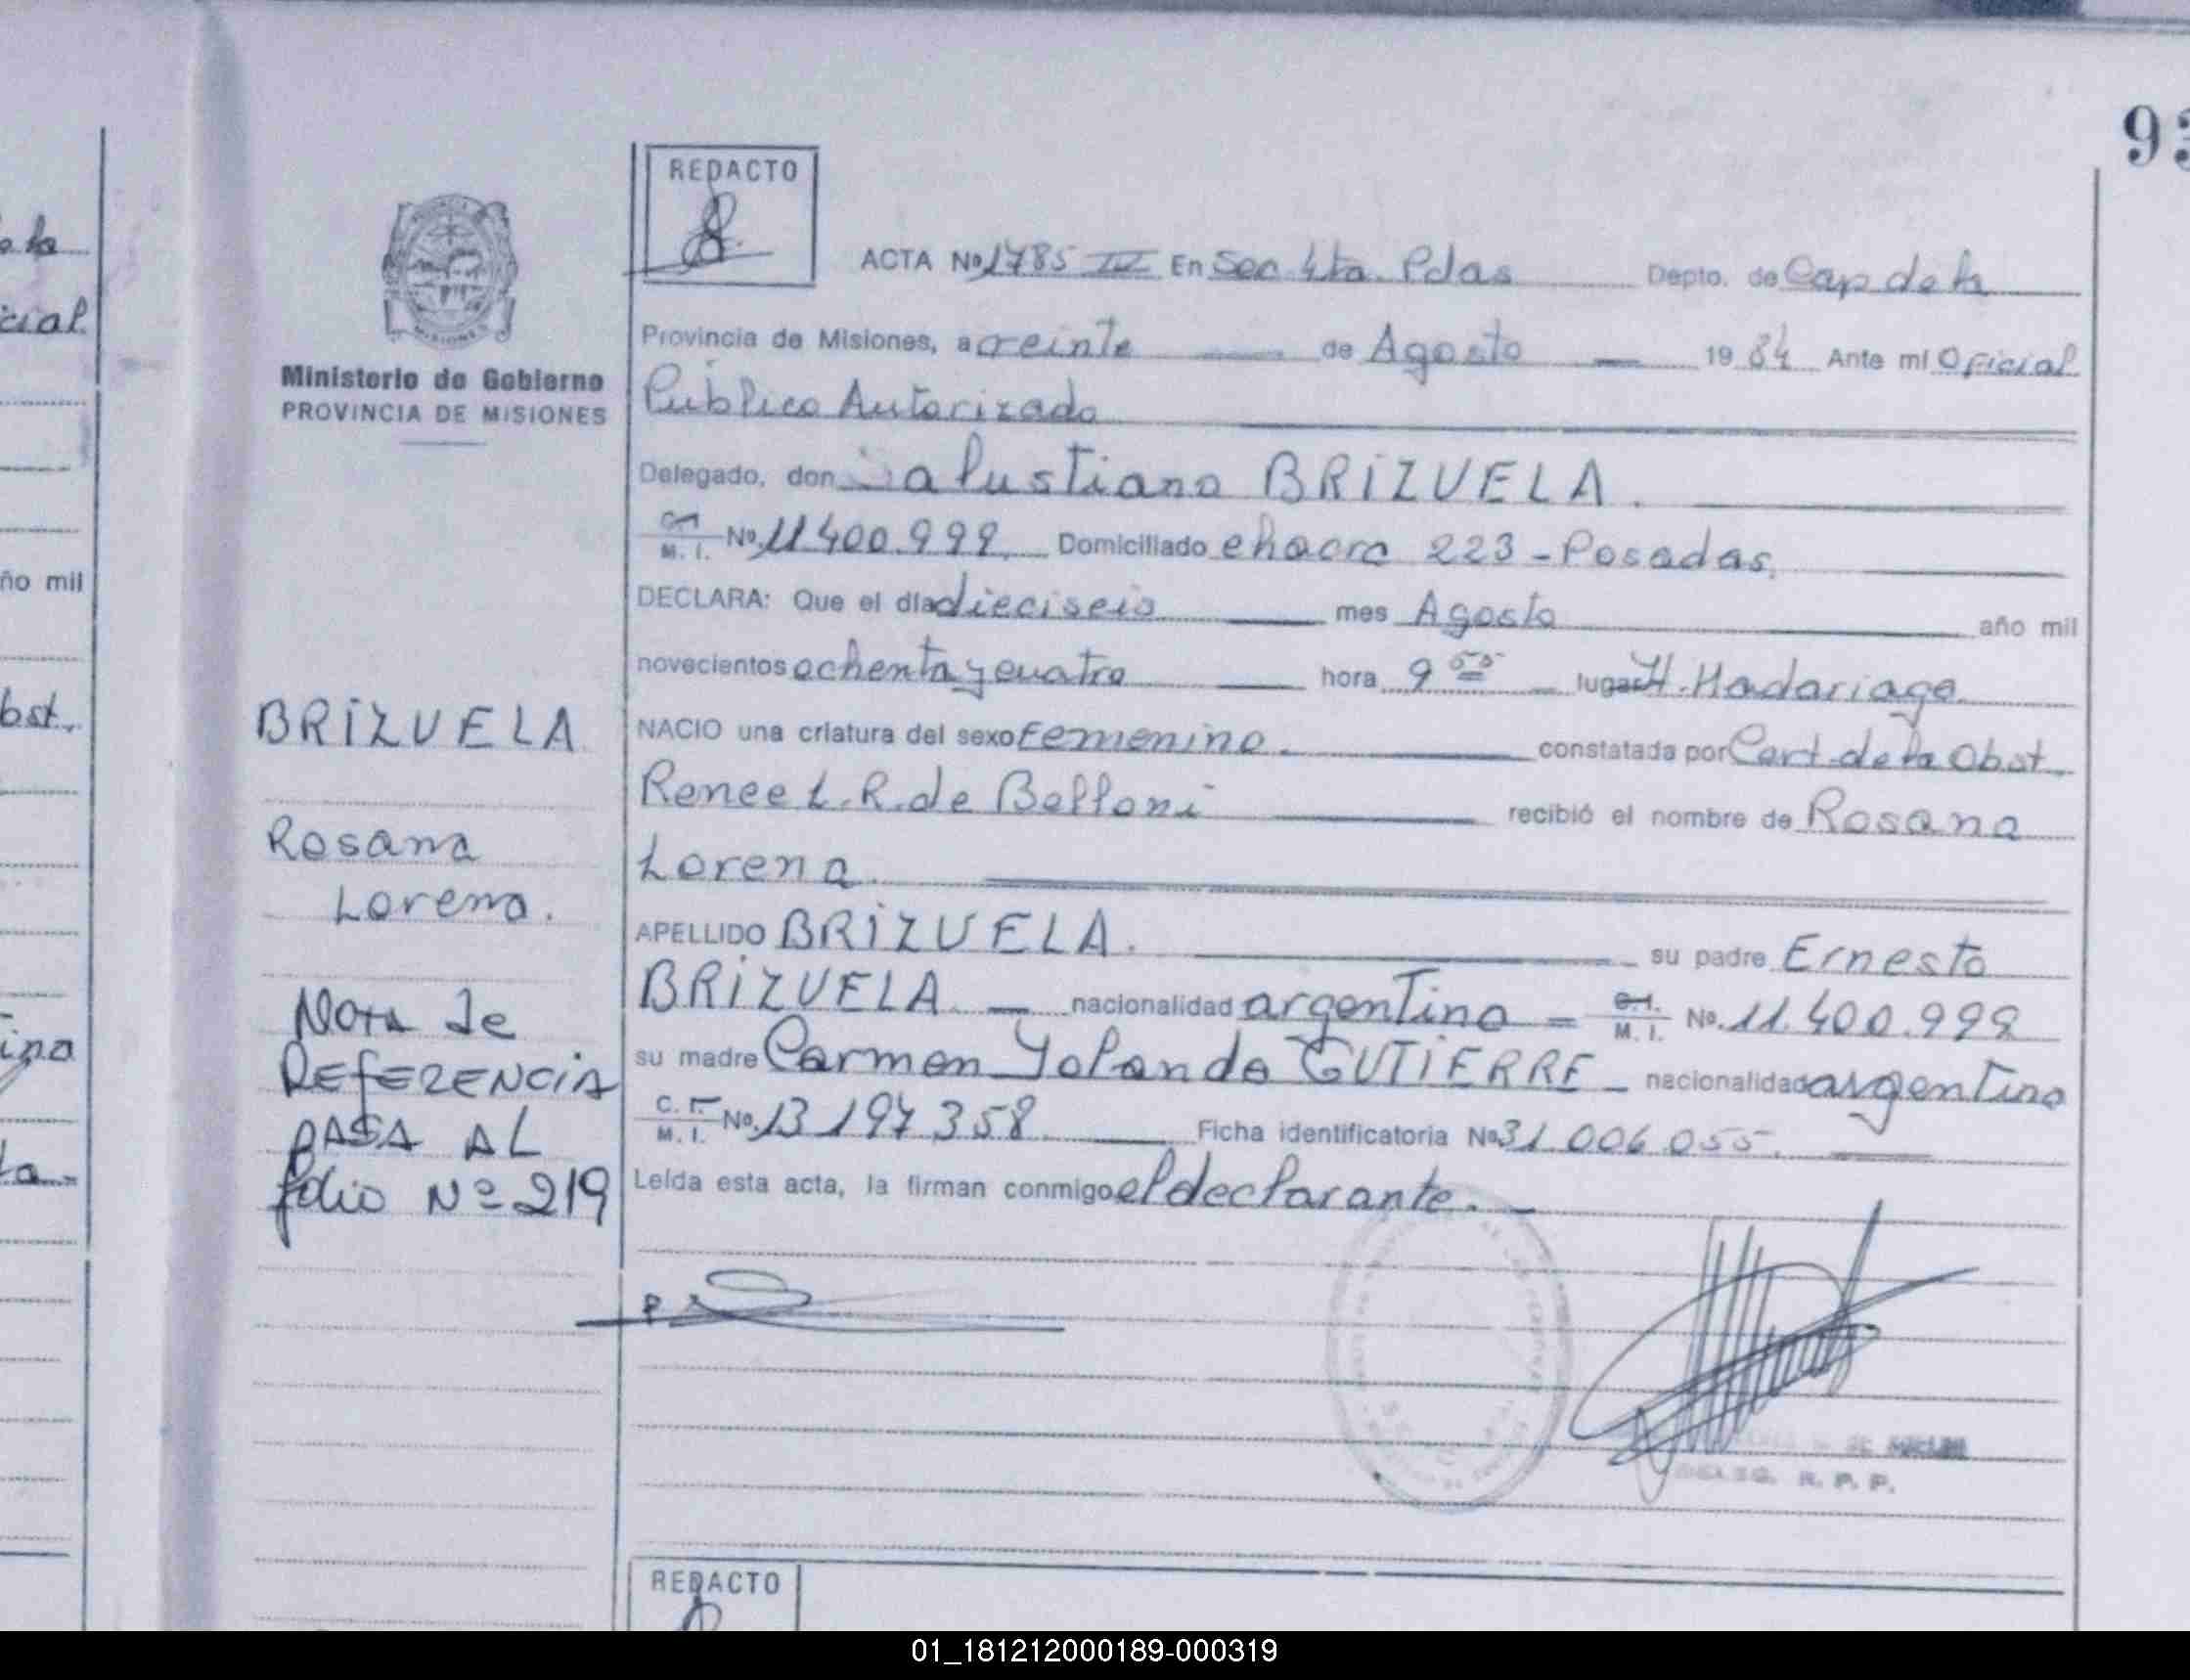 93
REDACTO
ACTA Nº 1785 IV En Sec 4ta. Pdas Depto. de Cap de la
Provincia de Misiones, a veinte de Agosto 1984 Ante mí Oficial
Público Autorizado
Delegado, don Salustiano BRIZUELA.
M. I. Nº 11.400.999. Domiciliado chacra 223 - Posadas,
DECLARA: Que el día dieciseis mes Agosto año mil
novecientos ochenta y cuatro hora 9 55 lugar H. Madariaga
NACIO una criatura del sexo Femenino. constatada por Cert. de la Obst.
Renee L. R. de Belloni recibió el nombre de Rosana
Lorena.
APELLIDO BRIZUELA. su padre Ernesto
BRIZUELA nacionalidad argentino C.I. M. I. Nº. 11.400.999
su madre Carmen Yolanda GUTIERRE nacionalidad argentina
C. I. M. I. Nº. 13 197 358 Ficha identificatoria Nº 31.006.055.
Leída esta acta, la firman conmigo el declarante.
R. P. P.
REDACTO
Ministerio de Gobierno
PROVINCIA DE MISIONES
BRIZUELA
Rosana
Lorena.
NOTA de
REFERENCIA
PASA AL
folio Nº 219
cial
ño mil
bst.
01_181212000189-000319